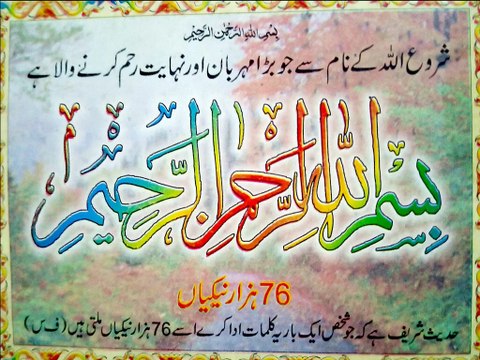 بسم اللہ الرحمٰن الرحیم
شروع اللہ کے نام سے جو بڑا مہربان اور نہایت رحم کرنے والا ہے
بِسْمِ اللهِ الرَّحْمٰنِ الرَّحِيْمِ
76 ہزار نیکیاں
حدیث شریف ہے کہ جو شخص ایک بار یہ کلمات ادا کرے اسے 76 ہزار نیکیاں ملتی ہیں (ف س)